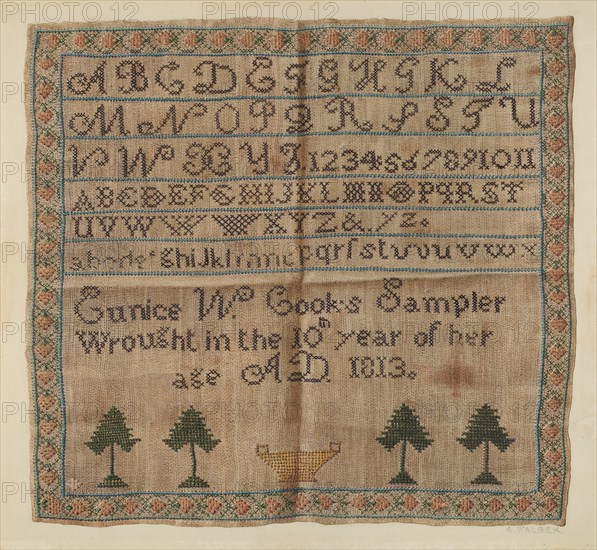 A B C D E F G H G K L
M N O P Q R S T U
V W X Y Z. 1 2 3 4 5 6 7 8 9 10 11
A B C D E F G H I J K L M N O P Q R S T
U V W X Y Z & / z .
a b c d e f g h i j k l m n o p q r ſ s t u v w x
Eunice W Cooks Sampler
Wrought in the 10th year of her
age AD 1813.
PHOTO 12